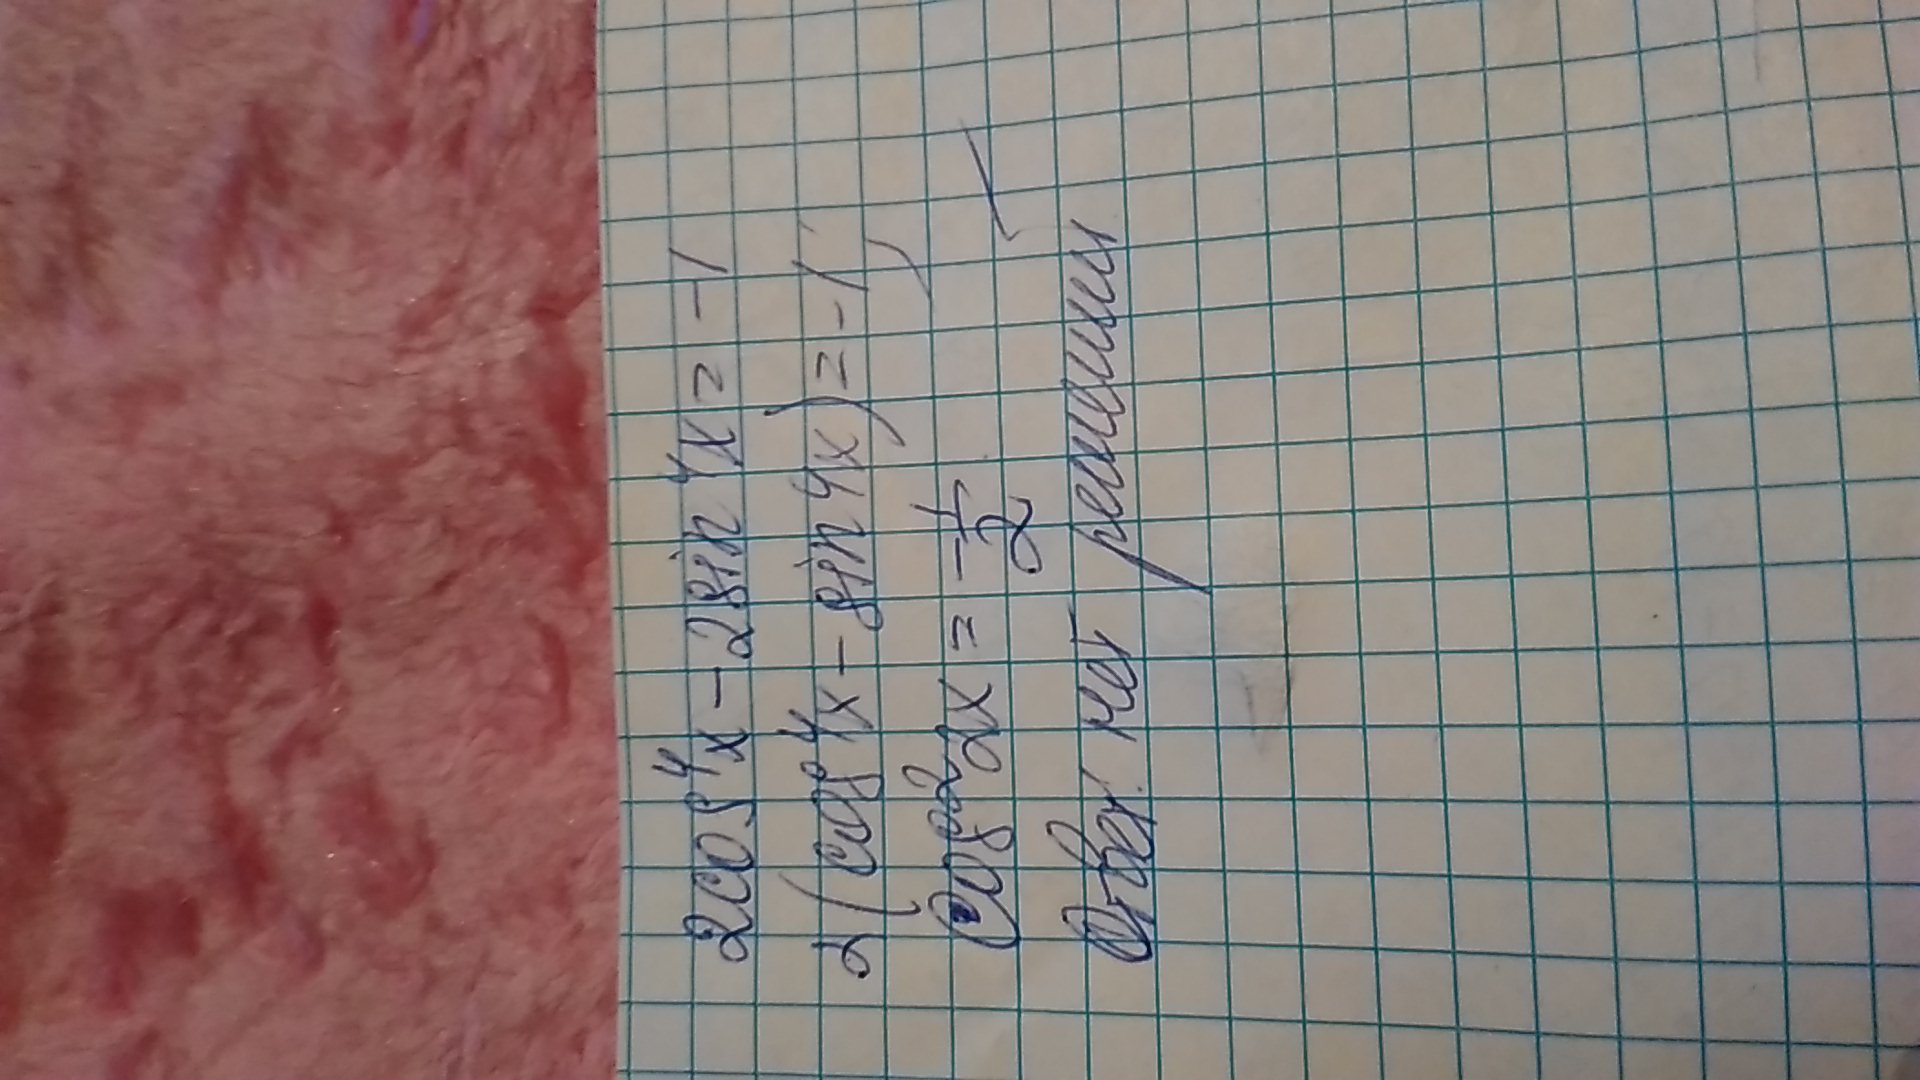 2cos⁴x - 2sin⁴x = -1
2(cos⁴x - sin⁴x) = -1
cos²2x = -1/2
Ответ: нет решений